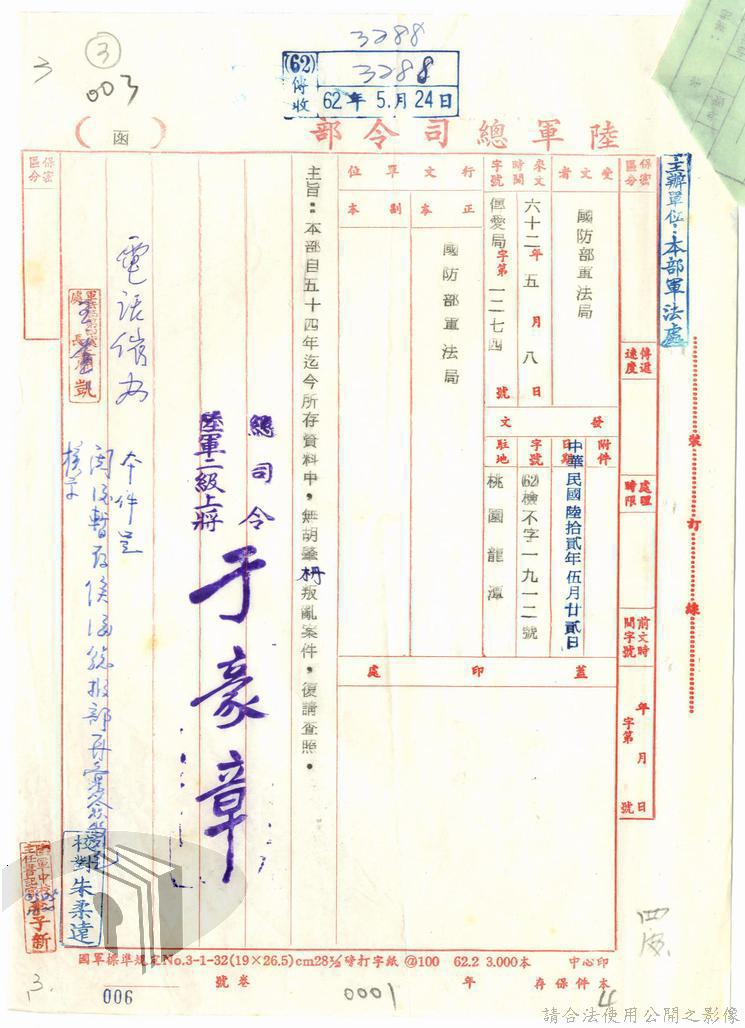 3288
3
③
003
(62)傳收
3288
62年 5.月24日
陸軍總司令部
（函）
主辦單位：本部軍法處
裝 訂 線
保密區分
傳遞速度
處理時限
前文時間字號
年 月 日
字第 號
受文者
國防部軍法局
來文時間字號
六十二年五月八日
字第一二七四號
發文
附件
日期
中華民國陸拾貳年伍月廿貳日
字號
(62)檢不字一九一二號
駐地
桃園龍潭
行文單位
正本
國防部軍法局
副本
蓋印處
主旨：本部自五十四年迄今所存資料中，無胡肇枬叛亂案件，復請查照。
總司令
陸軍二級上將
于豪章
電話備查
本件呈
閱後暫存俟
核示
保密區分
校對朱柔遠
四處
國軍標準規定No.3-1-32(19×26.5)cm28 打字紙@100 62.2 3.000本 中心印
號卷
年
本件保存
3.
006
0001
4
請合法使用公開之影像